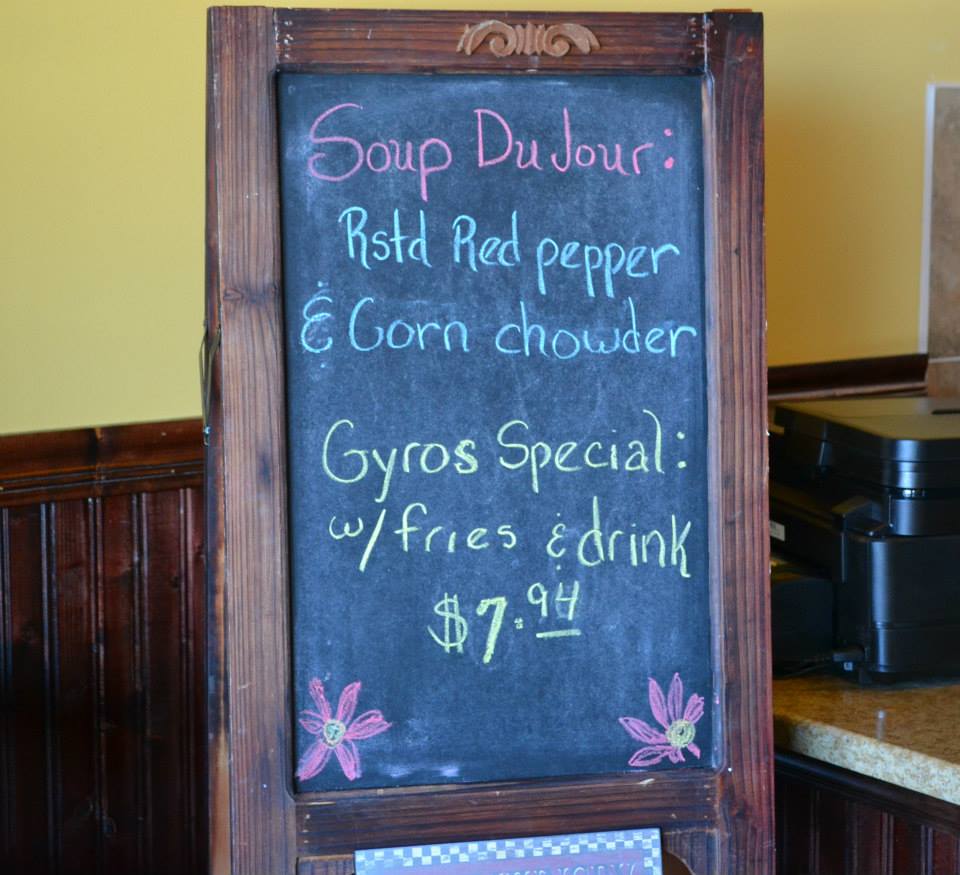 Soup Du Jour:
Rstd Red pepper
& Corn chowder
Gyros Special:
w/ fries & drink
$7.94